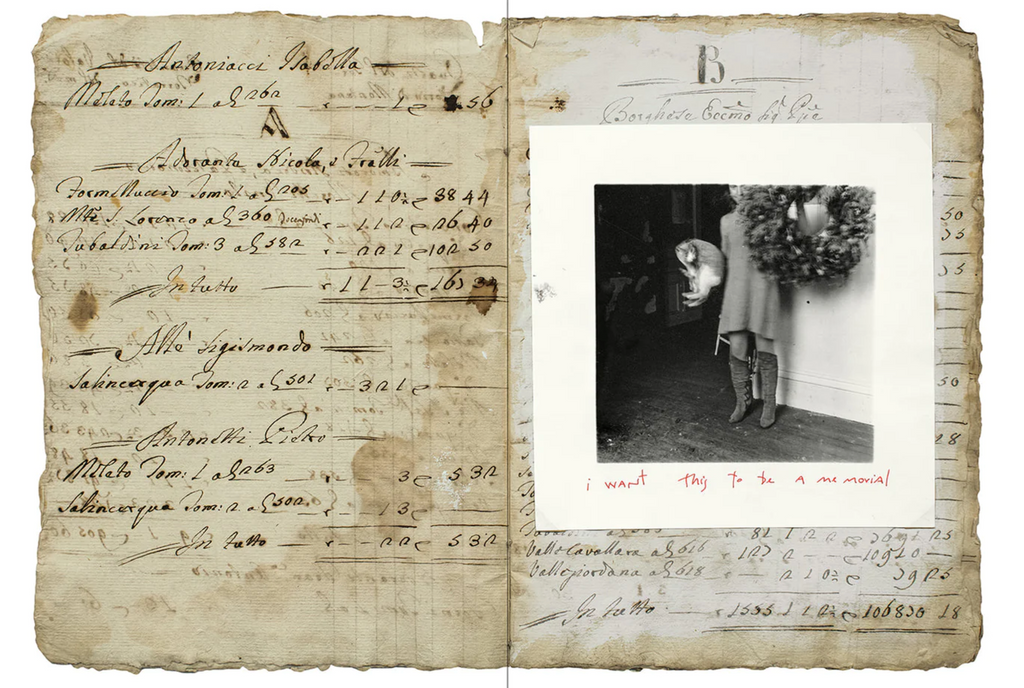 Antoniacci Isabella
Meleto Tom: 1 a 262 1 56
A
Adoranta Nicola, e Fratelli
Tom: 1 a 205 1 1 0 38 44
Mte S. Lorenzo a 360 1 1 2 26 40
Tubaldini Tom: 3 a 582 2 2 1 102 50
In tutto 1 1 3
Sigismondo
Salincerqua Tom: 2 a 501 3 2 1
Antonetti Pietro
Meleto Tom: 1 a 263 3 5 32
Salincerqua Tom: 2 a 502 1 3
In tutto 2 2 5 32
B
Borghese Eccmo Sig Pñe
50
35
35
50
18
i want this to be a memorial
81 1 2 2 25
Vallecavallara a 616 127 109 10
Vallegiordana a 618 2 1 0 39 25
In tutto 1535 1 1 2 106830 18